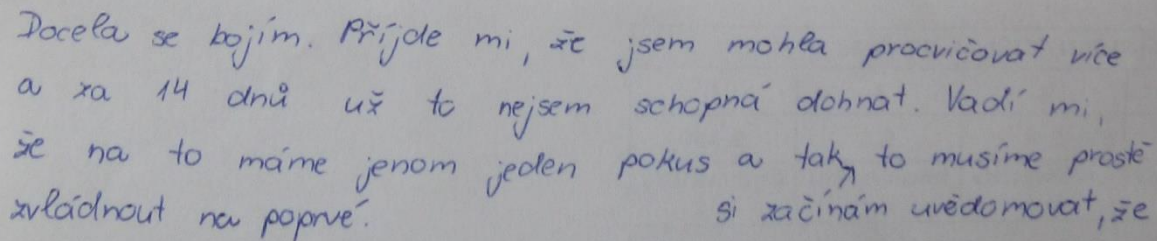 Docela se bojím. Příjde mi, že jsem mohla procvičovat více
a za 14 dnů už to nejsem schopná dohnat. Vadí mi,
že na to máme jenom jeden pokus a tak to musíme prostě
zvládnout na poprvé. si začínám uvědomovat, že